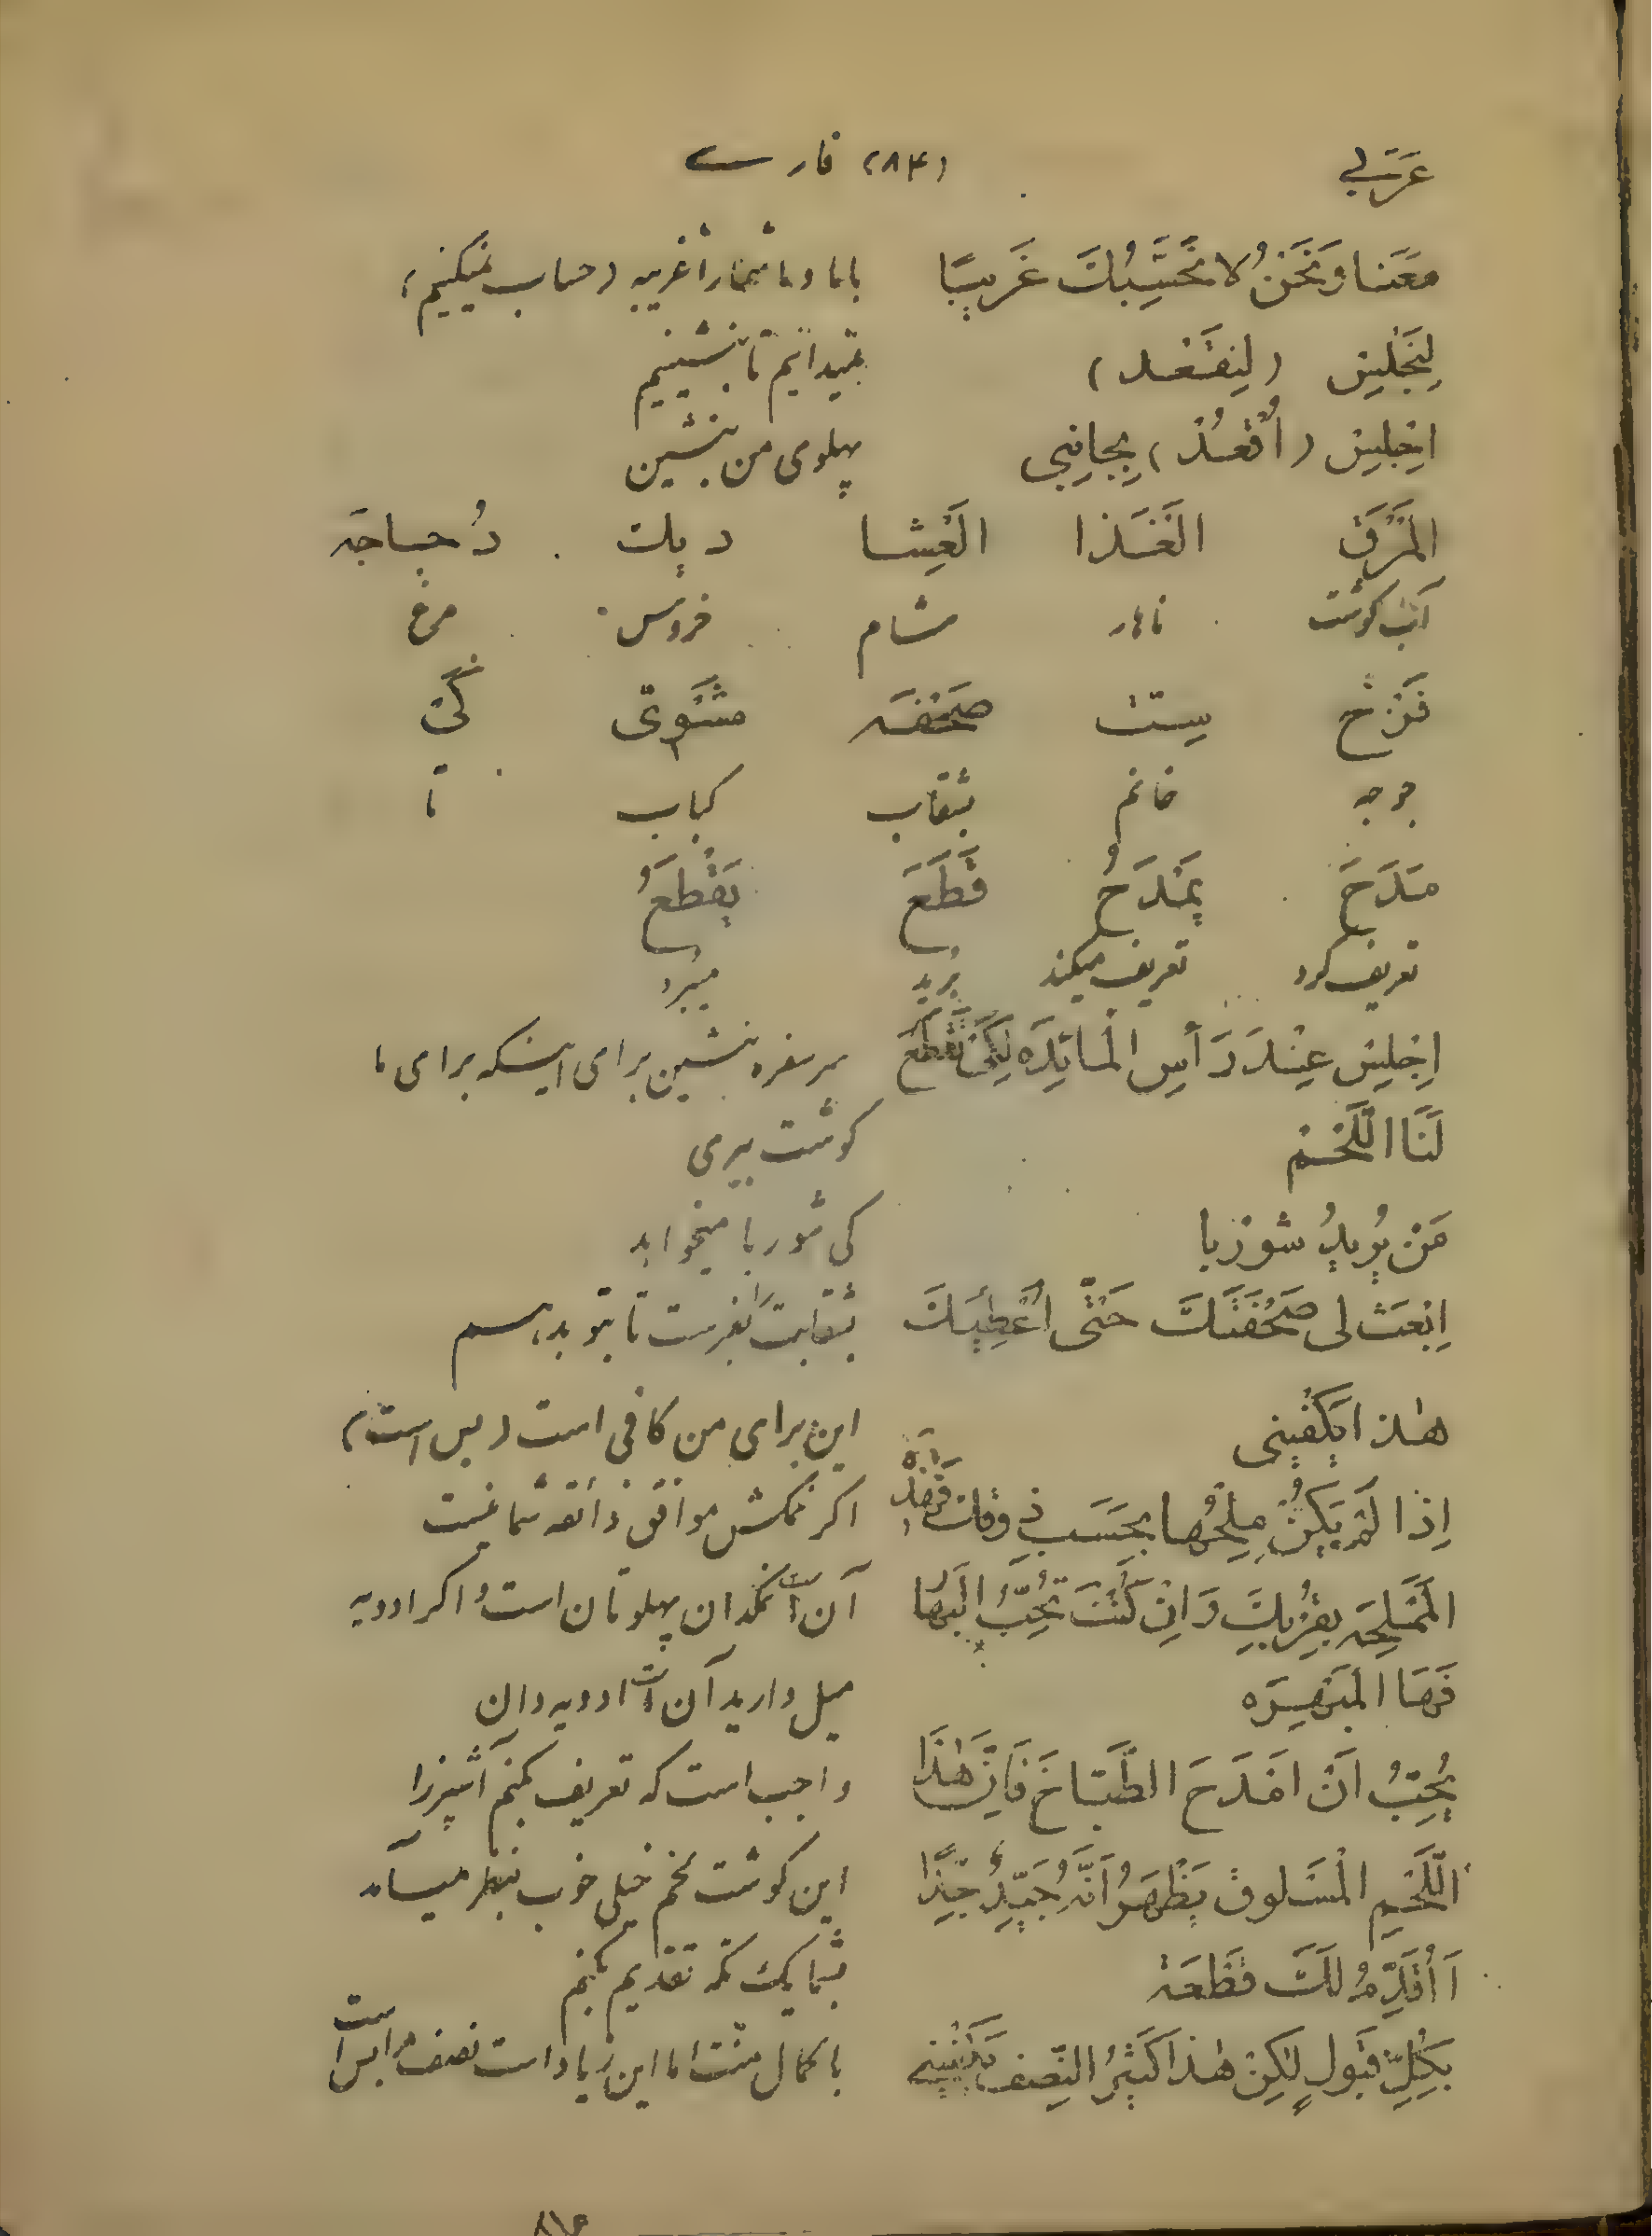 عَرَبی (۸۴) فارسے
مَعَنا وَنَحْنُ لا نَحْسَبُكَ غَریبًا باما و ما شما را غریبه (حساب نمیکنیم)
لِنَجْلِسْ (لِنَقْعُد) تا بنشینیم
اِجْلِسْ (اُقْعُدْ) بِجانِبی پهلوی من بنشین
اَلْمَرَقْ اَلْغَذا اَلْعَشا دیك دُجاجَه
آب گوشت ناهار شام خروس مرغ
فَرْخ سِتْ صَحْفَه مَشْوِی کَیْ
جوجه خانم بشقاب کباب تا
مَدَحَ یَمْدَحُ قَطَعَ یَقْطَعُ
تعریف کرد تعریف میکند برید میبرد
اِجْلِسْ عِنْدَ رَأسِ الْمائِدَه لِکَیْ تَقْطَعَ سر سفره بنشین برای اینکه برای ما
لَنَا اللَّحْمْ گوشت ببری
مَنْ یُریدُ شورْبا کی شوربا میخواهد
اِبْعَثْ لی صَحْفَتَكَ حَتّی اُعْطِیَكَ بشقابت را بفرست تا بتو بدهم
هٰذا یَکْفینی این برای من کافی است (بس است)
اِذا لَمْ یَکُنْ مِلْحُها بِحَسَبِ ذوقك اگر نمکش موافق ذائقه شما نیست
اَلْمَمْلَحَه بِقُرْبِكَ وَاِنْ کُنْتَ تُحِبُّ الْبَهار آن است نمکدان پهلوتان است و اگر ادویه
فَهَا الْمَبْهَرَه میل دارید آن است ادویه دان
یَجِبُ اَنْ اَمْدَحَ الطَّبّاخَ فَاِنَّ هٰذَا واجب است که تعریف کنم آشپز را
اللَّحْمِ الْمَسْلوقْ یَظْهَرُ اَنَّهُ جَیِّدٌ جِدًّا این گوشت لخم خیلی خوب بنظر میآید
أَاُقَدِّمُ لَكَ قِطْعَةْ بشما یك تکه تقدیم بکنم
بِکُلِّ قَبولٍ لٰکِنْ هٰذا کَثیرُ النِّصْف یَکْفینی با کمال منت اما این زیاد است نصف مرا بس است